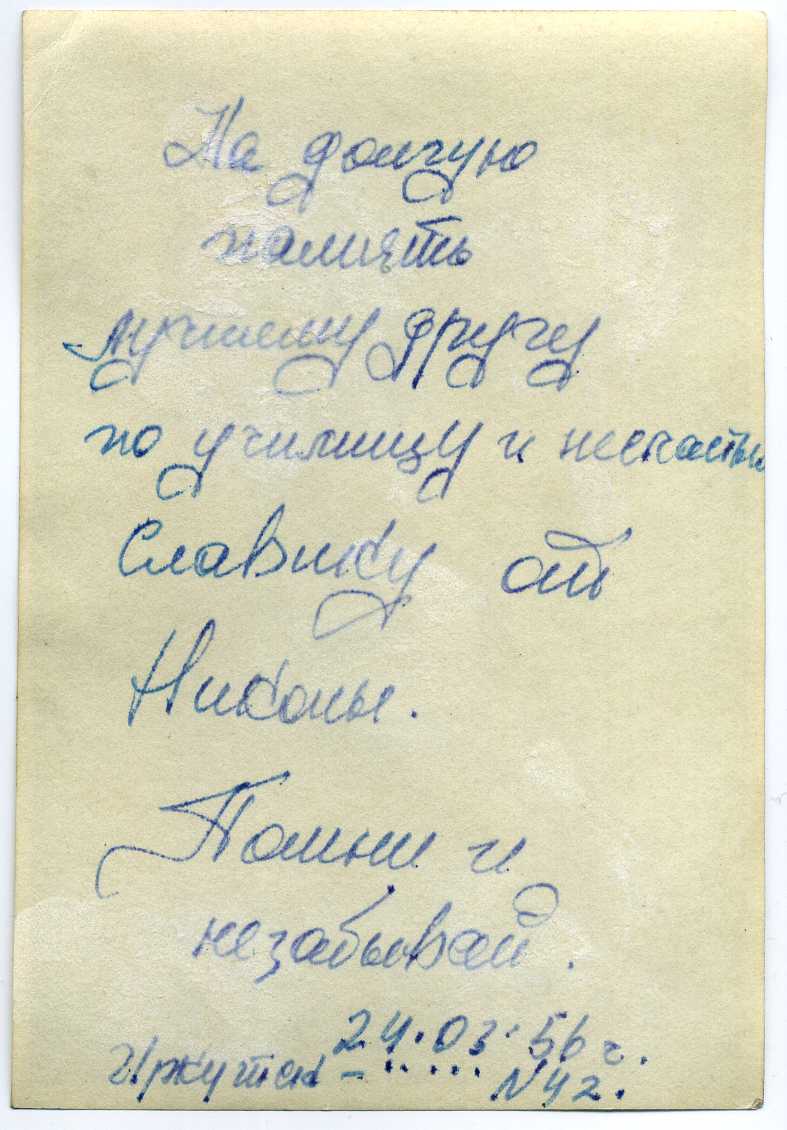 На долгую
память
лучшему другу
по училищу и несчастью
Славику от
Николы.
Помни и
незабывай.
24.03.56 г.
Иркутск - ..... N42.